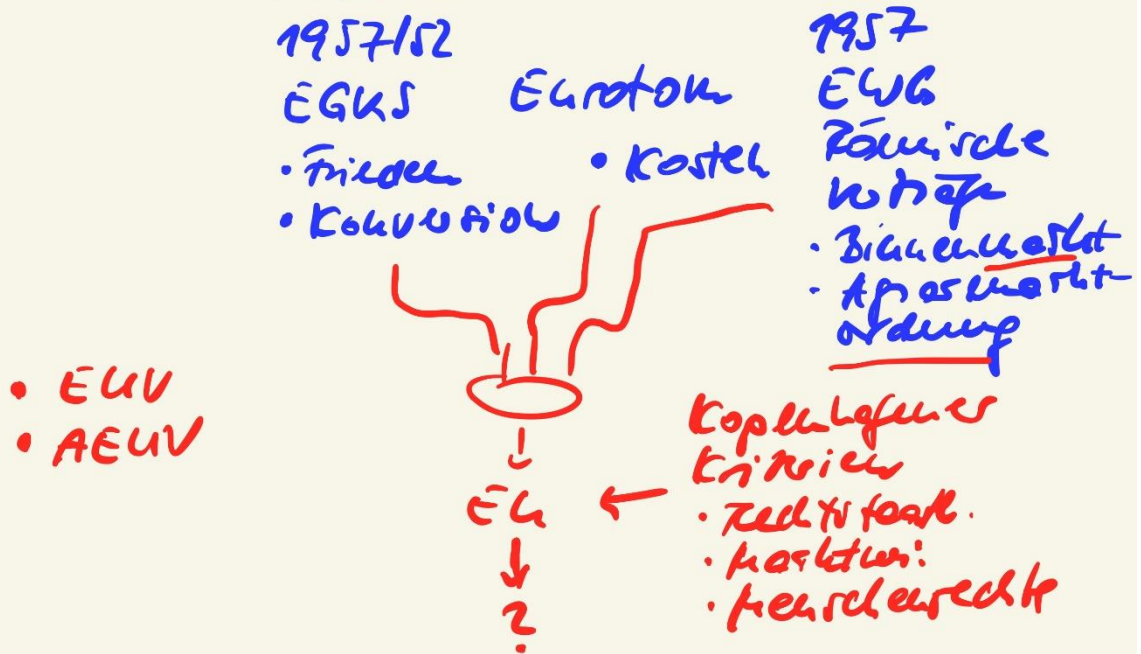 1957/52
EGKS
• Frieden
• Konversion
Euratom
• Kosten
1957
EWG
Römische
Verträge
• Binnenmarkt
• Agrarmarkt-
ordnung
• EUV
• AEUV
EU
?
Kopenhagener
Kriterien
• Rechtsstaatl.
• Marktwi.
• Menschenrechte